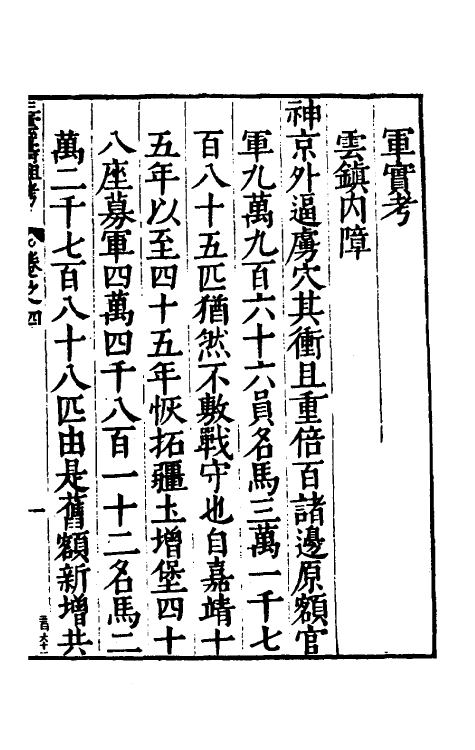 軍實考
雲鎮内障
神京外逼虜穴其衝且重倍百諸邊原額官
軍九萬九百六十六員名馬三萬一千七
百八十五匹猶然不敷戰守也自嘉靖十
五年以至四十五年恢拓疆土增堡四十
八座募軍四萬四千八百一十二名馬二
萬二千七百八十八匹由是舊額新增共
卷之四
一